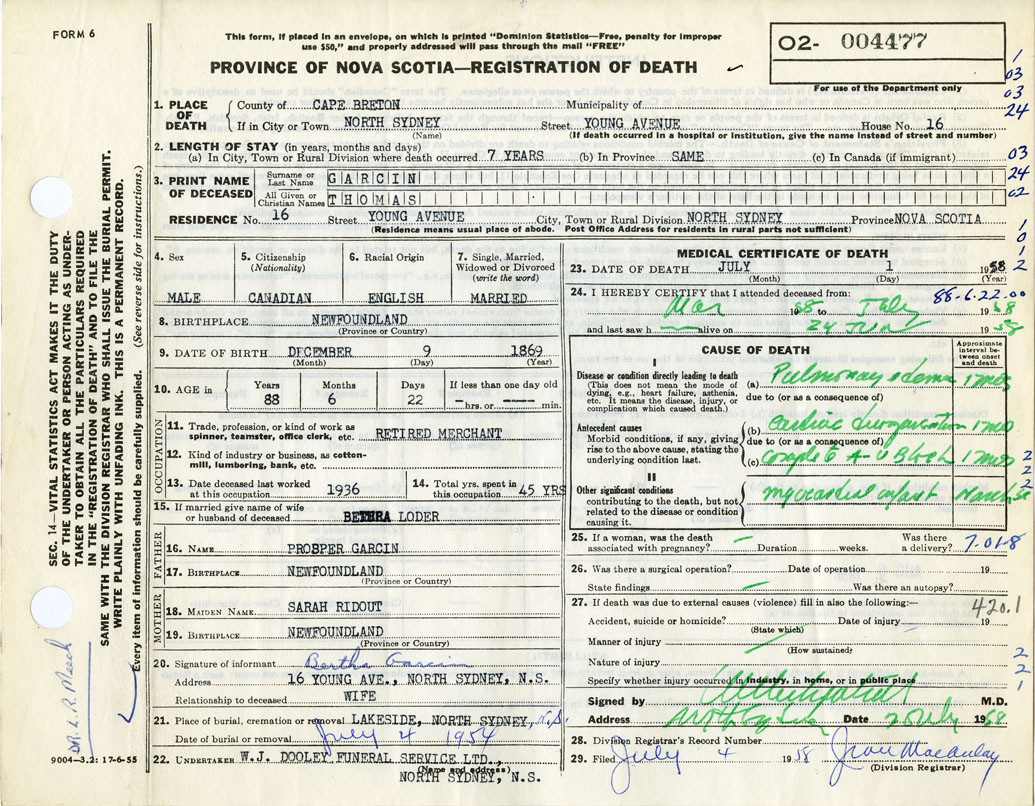 FORM 6
This form, if placed in an envelope, on which is printed "Dominion Statistics—Free, penalty for improper
use $50," and properly addressed will pass through the mail "FREE"
O2- 004477
For use of the Department only
PROVINCE OF NOVA SCOTIA—REGISTRATION OF DEATH
1
03
03
24
03
24
02
1
0
1
2
1. PLACE OF DEATH { County of CAPE BRETON Municipality of
If in City or Town NORTH SYDNEY Street YOUNG AVENUE House No. 16
(Name) (If death occurred in a hospital or institution, give the name instead of street and number)
2. LENGTH OF STAY (in years, months and days)
(a) In City, Town or Rural Division where death occurred 7 YEARS (b) In Province SAME (c) In Canada (if immigrant)
3. PRINT NAME OF DECEASED
Surname or Last Name GARCIN
All Given or Christian Names THOMAS
RESIDENCE No. 16 Street YOUNG AVENUE City, Town or Rural Division NORTH SYDNEY Province NOVA SCOTIA
(Residence means usual place of abode. Post Office Address for residents in rural parts not sufficient)
4. Sex
MALE
5. Citizenship
(Nationality)
CANADIAN
6. Racial Origin
ENGLISH
7. Single, Married,
Widowed or Divorced
(write the word)
MARRIED
8. BIRTHPLACE NEWFOUNDLAND
(Province or Country)
9. DATE OF BIRTH DECEMBER 9 1869
(Month) (Day) (Year)
10. AGE in
Years Months Days If less than one day old
88 6 22 — hrs. or — min.
OCCUPATION
11. Trade, profession, or kind of work as
spinner, teamster, office clerk, etc. RETIRED MERCHANT
12. Kind of industry or business, as cotton-
mill, lumbering, bank, etc.
13. Date deceased last worked
at this occupation 1936
14. Total yrs. spent in
this occupation 45 YRS
15. If married give name of wife
or husband of deceased BERTHA LODER
FATHER
16. NAME PROSPER GARCIN
17. BIRTHPLACE NEWFOUNDLAND
(Province or Country)
MOTHER
18. MAIDEN NAME SARAH RIDOUT
19. BIRTHPLACE NEWFOUNDLAND
(Province or Country)
20. Signature of informant Bertha Garcin
Address 16 YOUNG AVE., NORTH SYDNEY, N.S.
Relationship to deceased WIFE
21. Place of burial, cremation or removal LAKESIDE, NORTH SYDNEY, N.S.
Date of burial or removal July 4 1954
22. UNDERTAKER W.J. DOOLEY FUNERAL SERVICE LTD.,
(Name and address)
NORTH SYDNEY, N.S.
MEDICAL CERTIFICATE OF DEATH
23. DATE OF DEATH JULY 1 1958
(Month) (Day) (Year)
88-6-22.00
24. I HEREBY CERTIFY that I attended deceased from:
Mar 1958 to July 1958
and last saw h— alive on 24 June 1958
CAUSE OF DEATH
Approximate
interval be-
tween onset
and death
I
Disease or condition directly leading to death
(This does not mean the mode of
dying, e.g., heart failure, asthenia,
etc. It means the disease, injury, or
complication which caused death.)
(a) Pulmonary edema
due to (or as a consequence of)
Antecedent causes
Morbid conditions, if any, giving
rise to the above cause, stating the
underlying condition last.
(b) Cardiac
due to (or as a consequence of)
(c) Complete A-V Block
II
Other significant conditions
contributing to the death, but not
related to the disease or condition
causing it.
myocardial infarct
2
2
2
25. If a woman, was the death
associated with pregnancy? — Duration weeks. Was there
a delivery? 7-01-8
26. Was there a surgical operation? Date of operation 19
State findings Was there an autopsy?
27. If death was due to external causes (violence) fill in also the following:—
420.1
Accident, suicide or homicide? Date of injury 19
(State which)
Manner of injury
(How sustained)
Nature of injury
2
2
1
Specify whether injury occurred in industry, in home, or in public place
Signed by M.D.
Address North Sydney Date 2 July 1958
28. Division Registrar's Record Number
29. Filed July 4 1958 Jean Macaulay
(Division Registrar)
SEC. 14—VITAL STATISTICS ACT MAKES IT THE DUTY
OF THE UNDERTAKER OR PERSON ACTING AS UNDER-
TAKER TO OBTAIN ALL THE PARTICULARS REQUIRED
IN THE "REGISTRATION OF DEATH" AND TO FILE THE
SAME WITH THE DIVISION REGISTRAR WHO SHALL ISSUE THE BURIAL PERMIT.
WRITE PLAINLY WITH UNFADING INK. THIS IS A PERMANENT RECORD.
Every item of information should be carefully supplied. (See reverse side for instructions.)
DR. L. R. Meech
9004—3.2: 17-6-55